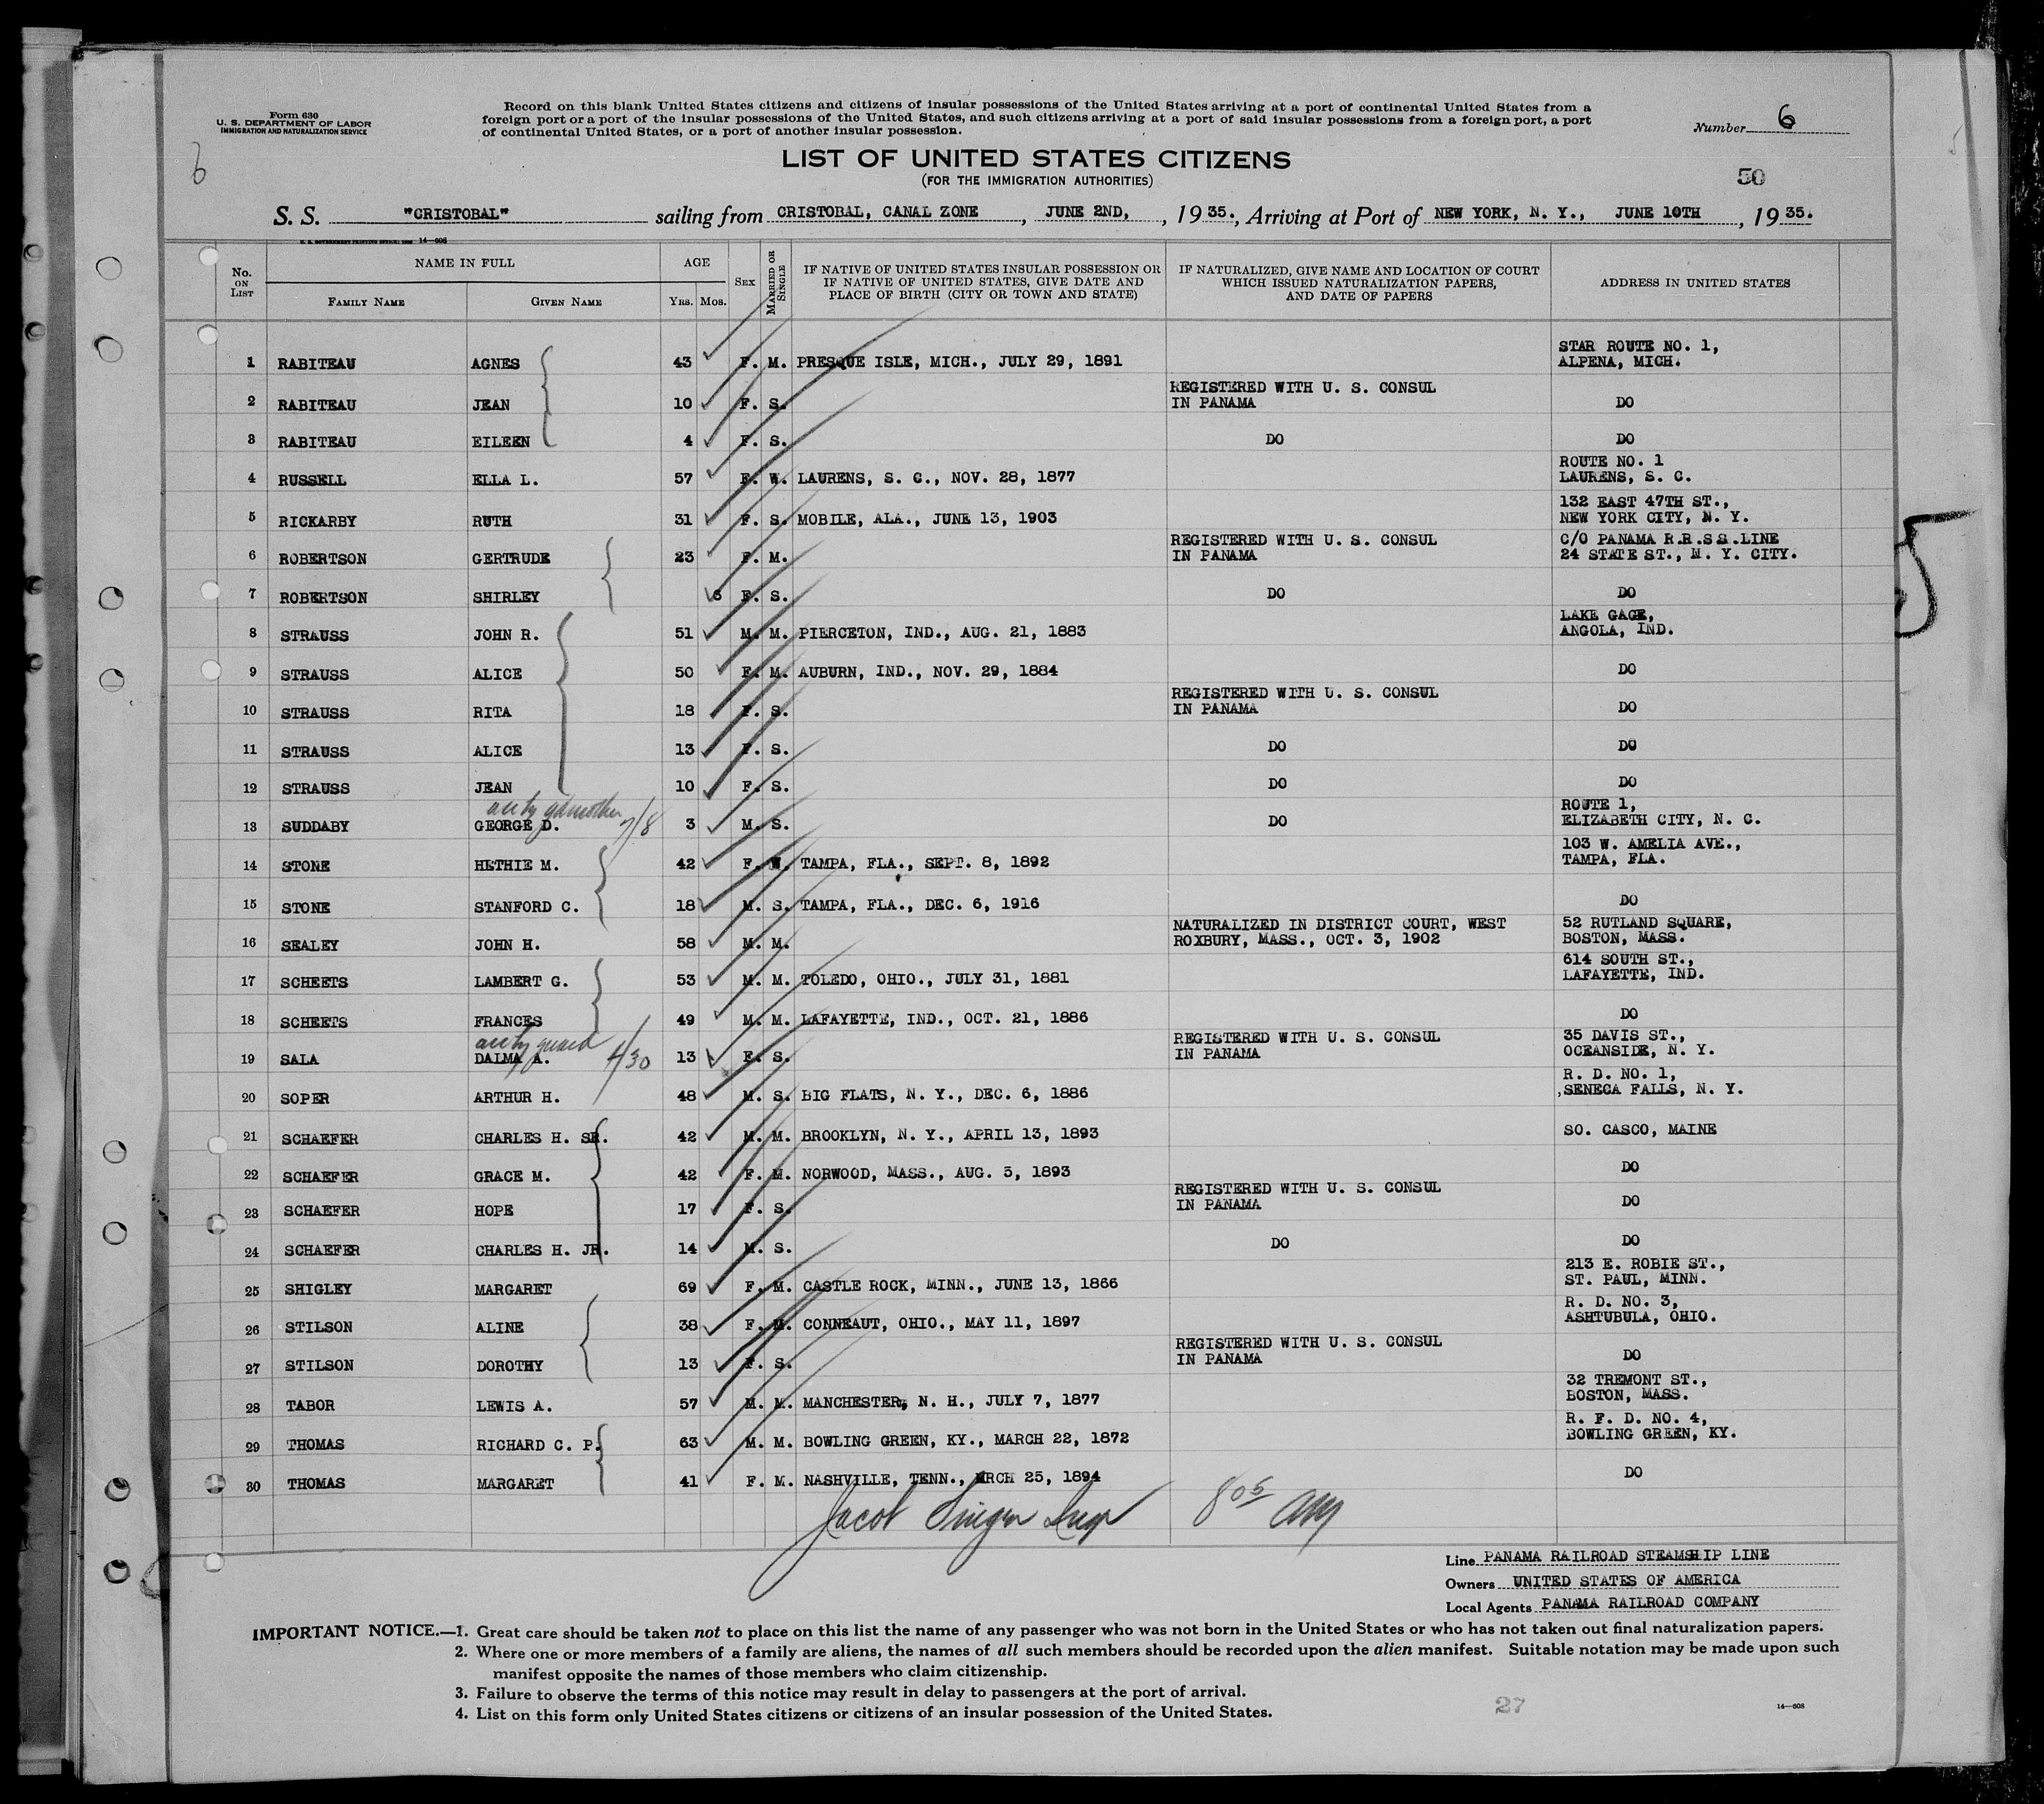 Form 630
U. S. DEPARTMENT OF LABOR
IMMIGRATION AND NATURALIZATION SERVICE
Record on this blank United States citizens and citizens of insular possessions of the United States arriving at a port of continental United States from a
foreign port or a port of the insular possessions of the United States, and such citizens arriving at a port of said insular possessions from a foreign port, a port
of continental United States, or a port of another insular possession.
Number 6
6
LIST OF UNITED STATES CITIZENS
(FOR THE IMMIGRATION AUTHORITIES)
50
S. S. "CRISTOBAL" sailing from CRISTOBAL, CANAL ZONE, JUNE 2ND, , 1935., Arriving at Port of NEW YORK, N. Y., JUNE 10TH, 1935.
U. S. GOVERNMENT PRINTING OFFICE: 14—608
No. ON LIST
NAME IN FULL
FAMILY NAME GIVEN NAME
AGE
YRS. MOS.
SEX
MARRIED OR SINGLE
IF NATIVE OF UNITED STATES INSULAR POSSESSION OR
IF NATIVE OF UNITED STATES, GIVE DATE AND
PLACE OF BIRTH (CITY OR TOWN AND STATE)
IF NATURALIZED, GIVE NAME AND LOCATION OF COURT
WHICH ISSUED NATURALIZATION PAPERS,
AND DATE OF PAPERS
ADDRESS IN UNITED STATES
STAR ROUTE NO. 1,
1 RABITEAU AGNES 43 F. M. PRESQUE ISLE, MICH., JULY 29, 1891 ALPENA, MICH.
REGISTERED WITH U. S. CONSUL
2 RABITEAU JEAN 10 F. S. IN PANAMA DO
3 RABITEAU EILEEN 4 F. S. DO DO
ROUTE NO. 1
4 RUSSELL ELLA L. 57 F. W. LAURENS, S. C., NOV. 28, 1877 LAURENS, S. C.
132 EAST 47TH ST.,
5 RICKARBY RUTH 31 F. S. MOBILE, ALA., JUNE 13, 1903 NEW YORK CITY, N. Y.
REGISTERED WITH U. S. CONSUL C/O PANAMA R.R.S.S.LINE
6 ROBERTSON GERTRUDE 23 F. M. IN PANAMA 24 STATE ST., N. Y. CITY.
7 ROBERTSON SHIRLEY 6 F. S. DO DO
LAKE GAGE,
8 STRAUSS JOHN R. 51 M. M. PIERCETON, IND., AUG. 21, 1883 ANGOLA, IND.
9 STRAUSS ALICE 50 F. M. AUBURN, IND., NOV. 29, 1884 DO
REGISTERED WITH U. S. CONSUL
10 STRAUSS RITA 18 F. S. IN PANAMA DO
11 STRAUSS ALICE 13 F. S. DO DO
12 STRAUSS JEAN 10 F. S. DO DO
ROUTE 1,
13 SUDDABY GEORGE D. 7/8 3 M. S. DO ELIZABETH CITY, N. C.
103 W. AMELIA AVE.,
14 STONE HETHIE M. 42 F. W. TAMPA, FLA., SEPT. 8, 1892 TAMPA, FLA.
15 STONE STANFORD C. 18 M. S. TAMPA, FLA., DEC. 6, 1916 DO
NATURALIZED IN DISTRICT COURT, WEST 52 RUTLAND SQUARE,
16 SEALEY JOHN H. 58 M. M. ROXBURY, MASS., OCT. 3, 1902 BOSTON, MASS.
614 SOUTH ST.,
17 SCHEETS LAMBERT G. 53 M. M. TOLEDO, OHIO., JULY 31, 1881 LAFAYETTE, IND.
18 SCHEETS FRANCES 49 M. M. LAFAYETTE, IND., OCT. 21, 1886 DO
REGISTERED WITH U. S. CONSUL 35 DAVIS ST.,
19 SALA DALMA A. 4/30 13 F. S. IN PANAMA OCEANSIDE, N. Y.
R. D. NO. 1,
20 SOPER ARTHUR H. 48 M. S. BIG FLATS, N. Y., DEC. 6, 1886 SENECA FALLS, N. Y.
21 SCHAEFER CHARLES H. SR. 42 M. M. BROOKLYN, N. Y., APRIL 13, 1893 SO. CASCO, MAINE
22 SCHAEFER GRACE M. 42 F. M. NORWOOD, MASS., AUG. 3, 1893 DO
REGISTERED WITH U. S. CONSUL
23 SCHAEFER HOPE 17 F. S. IN PANAMA DO
24 SCHAEFER CHARLES H. JR. 14 M. S. DO DO
213 E. ROBIE ST.,
25 SHIGLEY MARGARET 69 F. M. CASTLE ROCK, MINN., JUNE 13, 1866 ST. PAUL, MINN.
R. D. NO. 3,
26 STILSON ALINE 38 F. M. CONNEAUT, OHIO., MAY 11, 1897 ASHTUBULA, OHIO.
REGISTERED WITH U. S. CONSUL
27 STILSON DOROTHY 13 F. S. IN PANAMA DO
32 TREMONT ST.,
28 TABOR LEWIS A. 57 M. M. MANCHESTER, N. H., JULY 7, 1877 BOSTON, MASS.
R. F. D. NO. 4,
29 THOMAS RICHARD C. P. 63 M. M. BOWLING GREEN, KY., MARCH 22, 1872 BOWLING GREEN, KY.
30 THOMAS MARGARET 41 F. M. NASHVILLE, TENN., MRCH 25, 1894 DO
Jacob Singer Insp 8 05 AM
Line PANAMA RAILROAD STEAMSHIP LINE
Owners UNITED STATES OF AMERICA
Local Agents PANAMA RAILROAD COMPANY
IMPORTANT NOTICE.—1. Great care should be taken not to place on this list the name of any passenger who was not born in the United States or who has not taken out final naturalization papers.
2. Where one or more members of a family are aliens, the names of all such members should be recorded upon the alien manifest. Suitable notation may be made upon such
manifest opposite the names of those members who claim citizenship.
3. Failure to observe the terms of this notice may result in delay to passengers at the port of arrival.
4. List on this form only United States citizens or citizens of an insular possession of the United States.
27
14—608